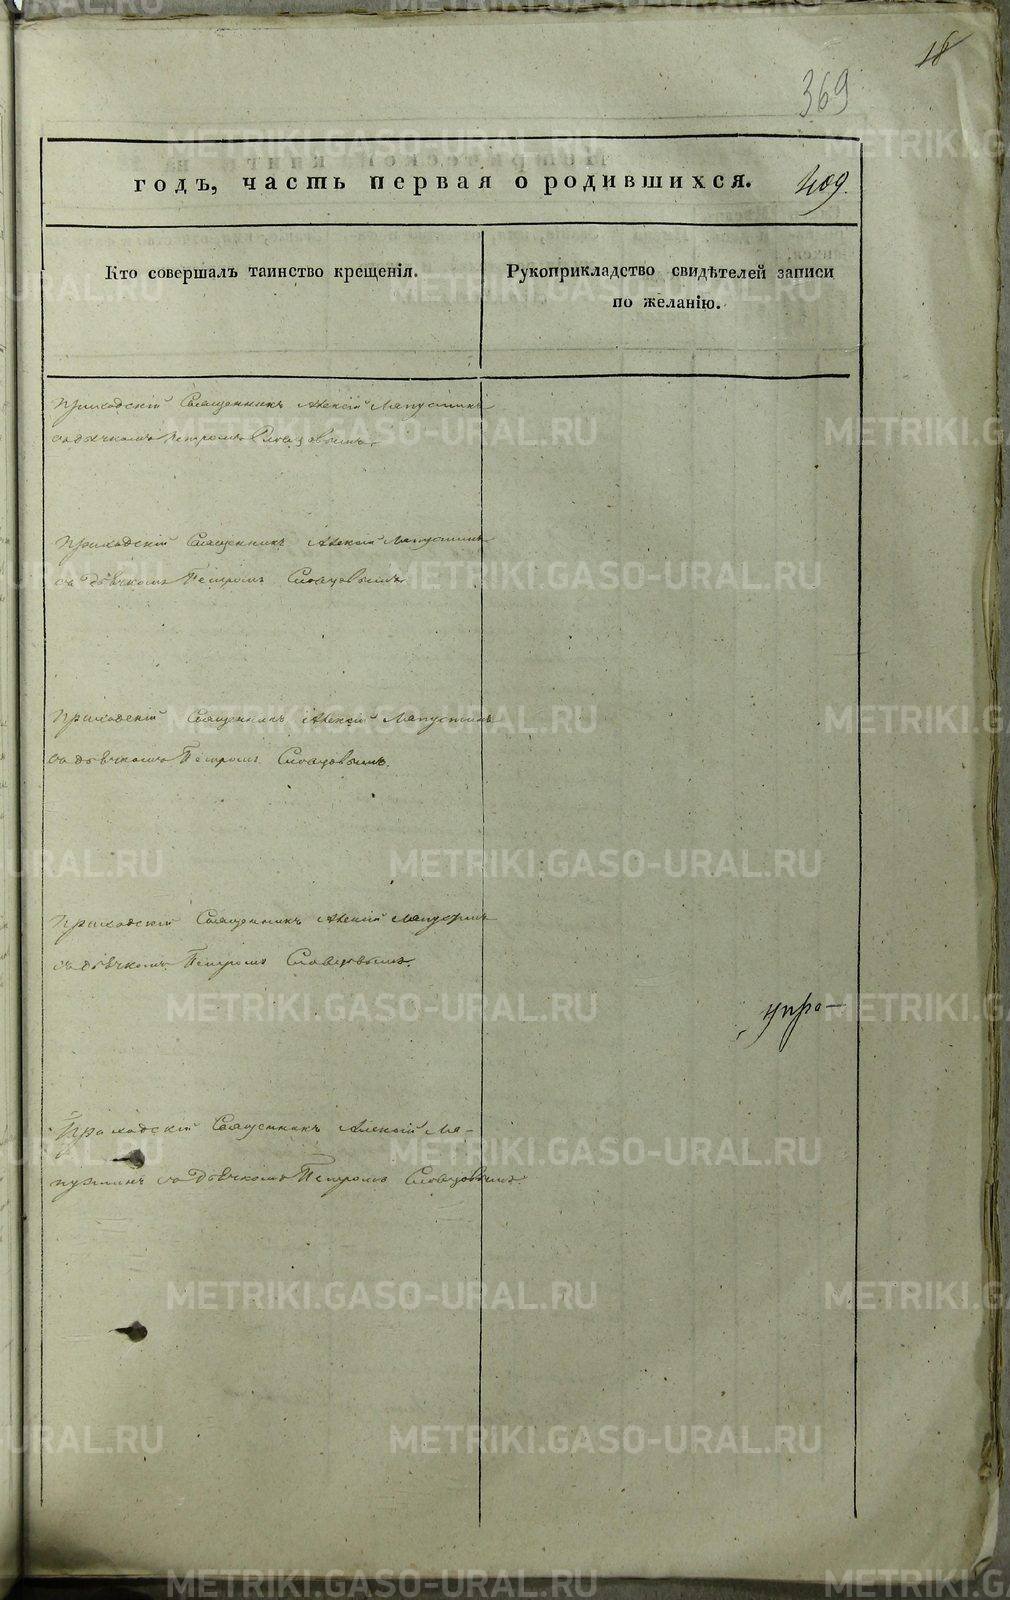 18
369
годъ, часть первая о родившихся. 409.
Кто совершалъ таинство крещенія.
Рукоприкладство свидѣтелей записи
по желанію.
Приходскій Священникъ Алексій Ляпустинъ
съ дьячкомъ Петромъ Словцовымъ.
Приходскій Священникъ Алексій Ляпустинъ
съ дьячкомъ Петромъ Словцовымъ.
Приходскій Священникъ Алексій Ляпустинъ
съ дьячкомъ Петромъ Словцовымъ.
Приходскій Священникъ Алексій Ляпустинъ
съ дьячкомъ Петромъ Словцовымъ.
Приходскій Священникъ Алексій Ля-
пустинъ съ дьячкомъ Петромъ Словцовымъ.
METRIKI.GASO-URAL.RU